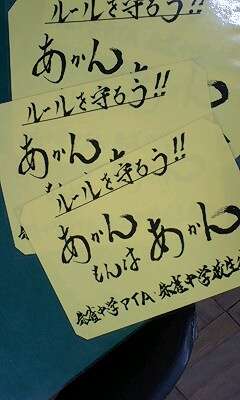 ルールを守ろう!!
あかん
ルールを守ろう!!
あかん
ルールを守ろう!!
あかん
もんは あかん
朱雀中学PTA 朱雀中学校生